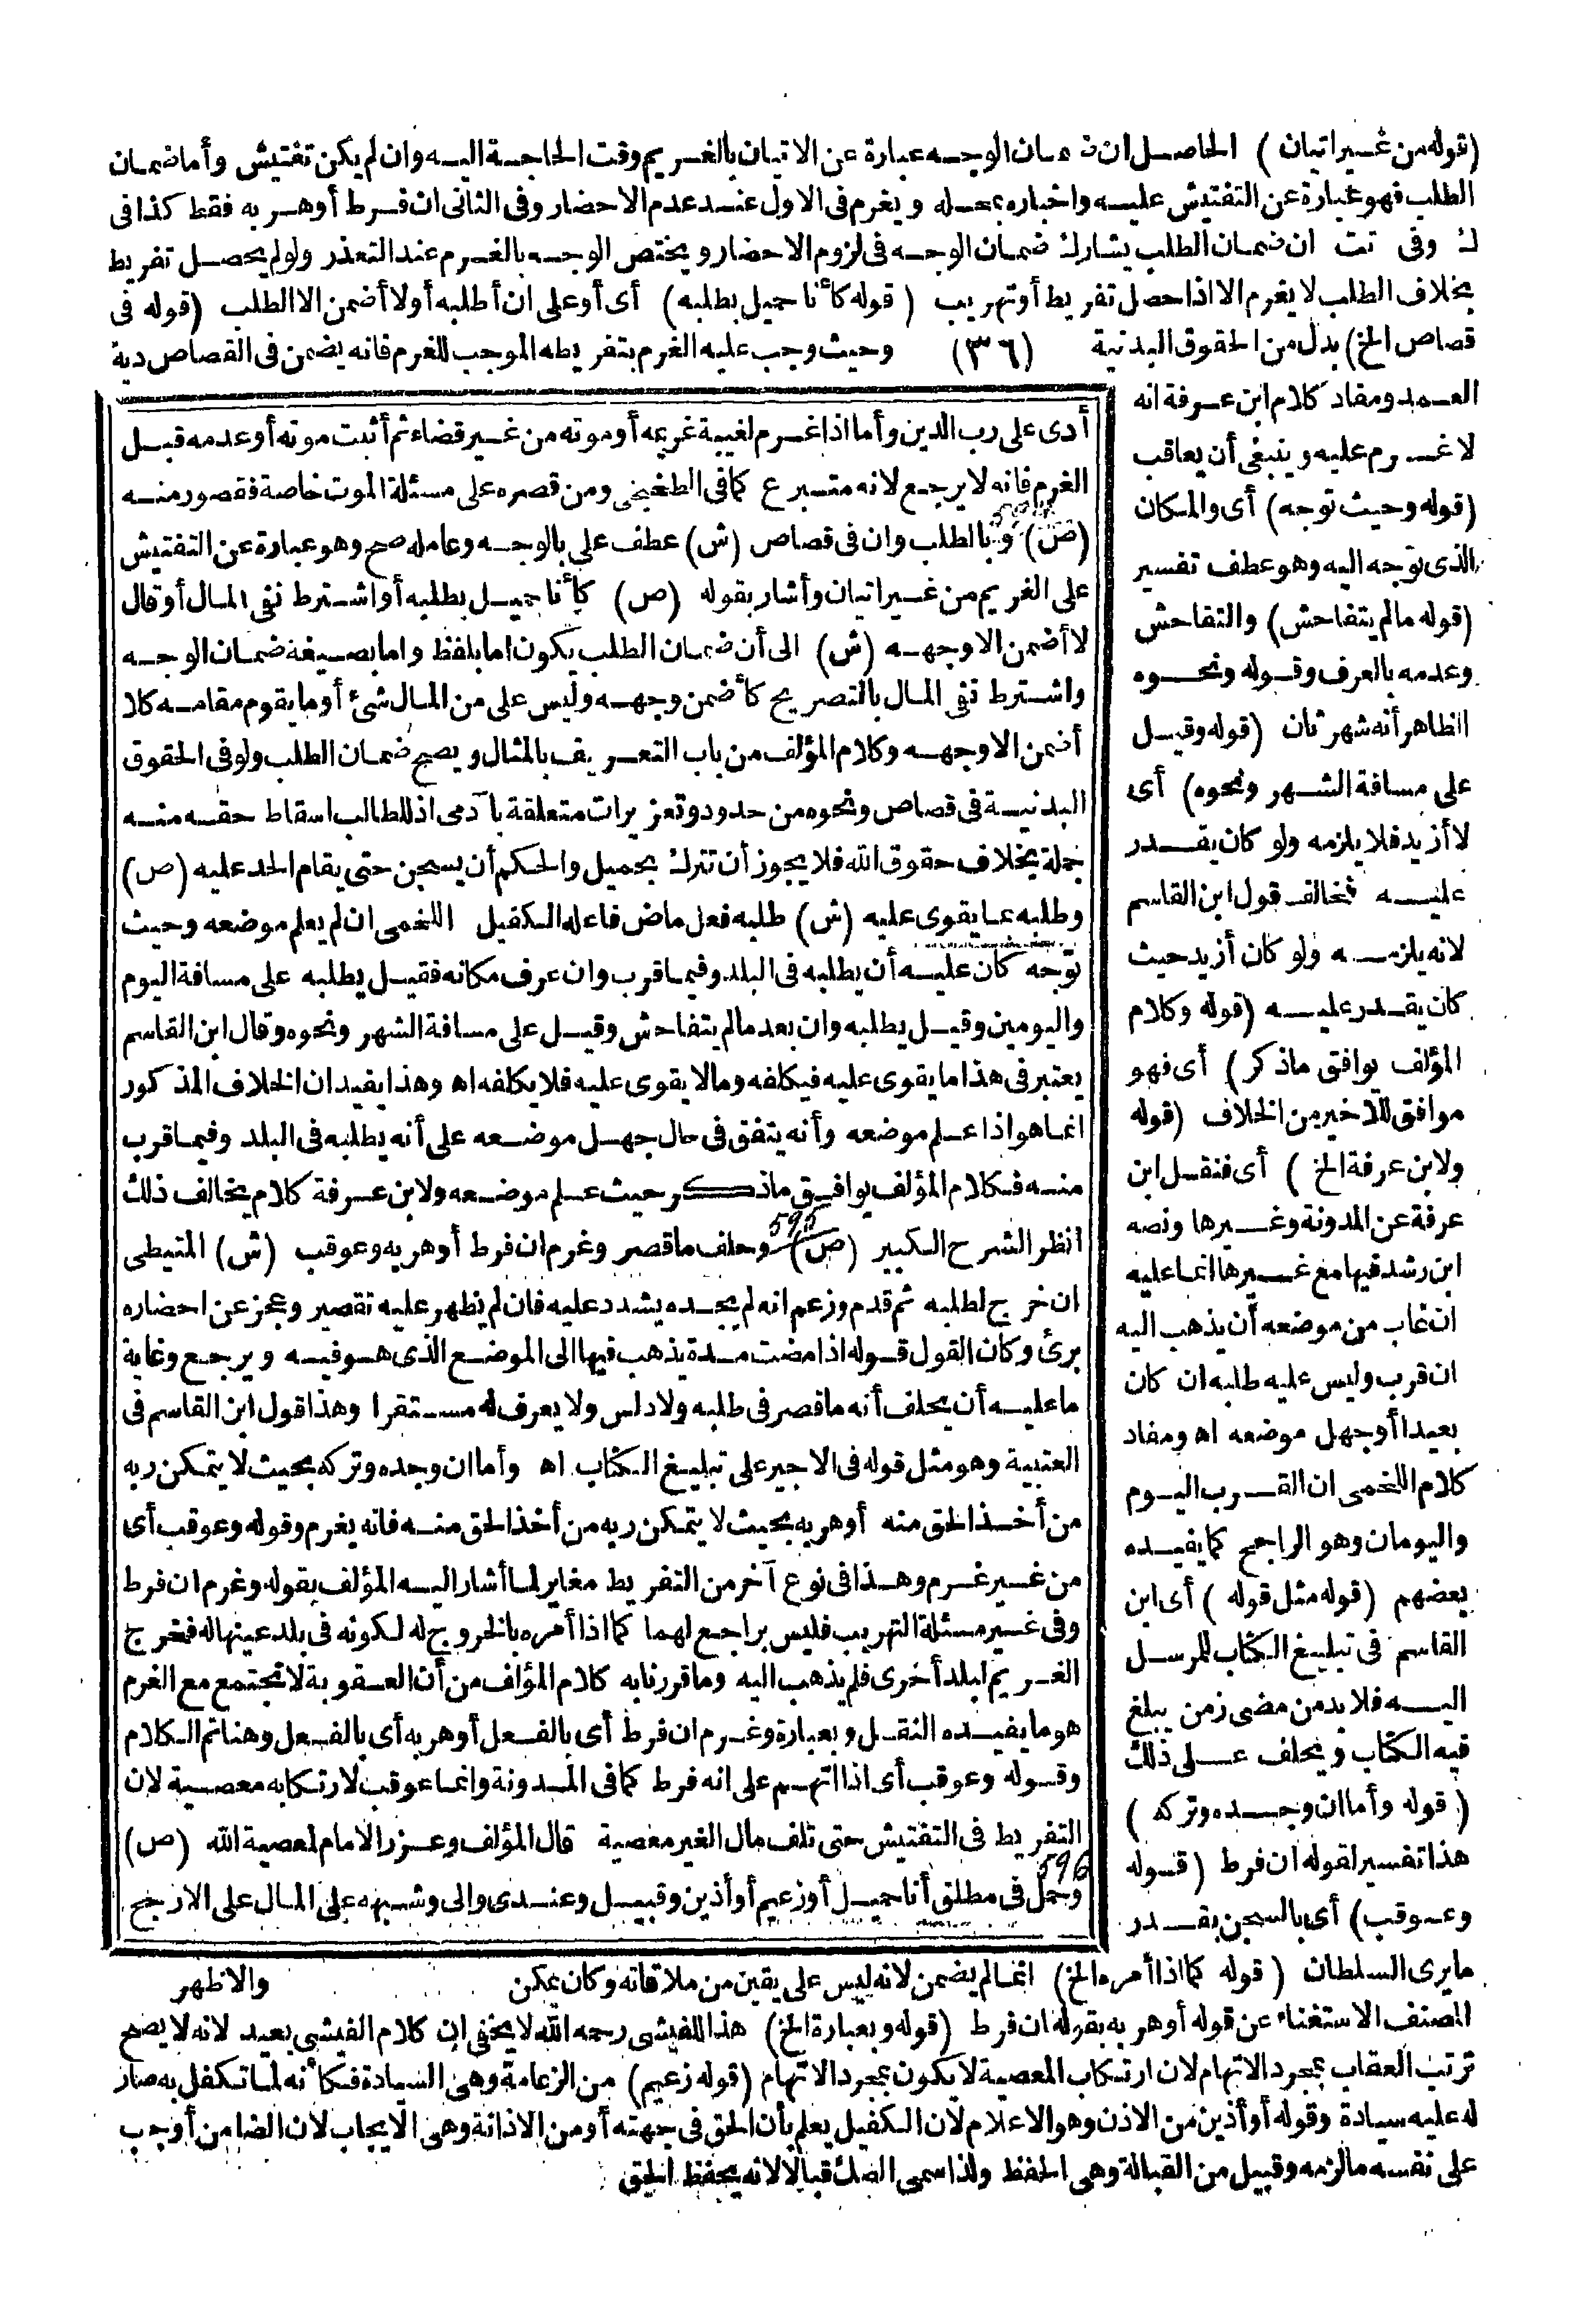 (قوله من غير اتيان) الحاصل ان ضمان الوجه عبارة عن الاتيان بالغريم وقت الحاجة اليه وان لم يكن تفتيش وأما ضمان
الطلب فهو عبارة عن التفتيش عليه واخباره بمحله ويغرم فى الاول عند عدم الاحضار وفى الثانى ان فرط أو هربه فقط كذا فى
ك وفى تت ان ضمان الطلب يشارك ضمان الوجه فى لزوم الاحضار ويختص الوجه بالغرم عند التعذر ولو لم يحصل تفريط
بخلاف الطلب لا يغرم الا اذا حصل تفريط أو تهريب (قوله كأنا حميل بطلبه) أى أو على ان أطلبه أولا أضمن الا الطلب (قوله فى
قصاص الخ) بدل من الحقوق البدنية (٣٦) وحيث وجب عليه الغرم بتفريطه الموجب للغرم فانه يضمن فى القصاص دية
العمد ومفاد كلام ابن عرفة انه
لا غرم عليه وينبغى أن يعاقب
(قوله وحيث توجه) أى والمكان
الذى توجه اليه وهو عطف تفسير
(قوله مالم يتفاحش) والتفاحش
وعدمه بالعرف وقوله ونحوه
الظاهر أنه شهر ثان (قوله وقيل
على مسافة الشهر ونحوه) أى
لا أزيد فلا يلزمه ولو كان يقدر
عليه فخالف قول ابن القاسم
لانه يلزمه ولو كان أزيد حيث
كان يقدر عليه (قوله وكلام
المؤلف يوافق ماذكر) أى فهو
موافق للاخير من الخلاف (قوله
ولابن عرفة الخ) أى فنقل ابن
عرفة عن المدونة وغيرها ونصه
ابن رشد فيها مع غيرها انما عليه
ان غاب من موضعه أن يذهب اليه
ان قرب وليس عليه طلبه ان كان
بعيدا أو جهل موضعه اه ومفاد
كلام اللخمى ان القرب اليوم
واليومان وهو الراجح كما يفيده
بعضهم (قوله مثل قوله) أى ابن
القاسم فى تبليغ الكتاب للمرسل
اليه فلابد من مضى زمن يبلغ
فيه الكتاب ويحلف على ذلك
(قوله وأما ان وجده وتركه)
هذا تفسير لقوله ان فرط (قوله
وعوقب) أى بالسجن بقدر
ما يرى السلطان (قوله كما اذا أمره الخ) انما لم يضمن لانه ليس على يقين من ملاقاته وكان يمكن
المصنف الاستغناء عن قوله أو هربه بقوله ان فرط (قوله وبعبارة الخ) هذا للفيشى رحمه الله لا يخفى ان كلام الفيشى بعيد لانه لا يصح
ترتب العقاب بمجرد الاتهام لان ارتكاب المعصية لا يكون بمجرد الاتهام (قوله زعيم) من الزعامة وهى السيادة فكأنه لما تكفل به صار
له عليه سيادة وقوله أو أذين من الاذن وهو الاعلام لان الكفيل يعلم بأن الحق فى جهته أو من الاذانة وهى الايجاب لان الضامن أوجب
على نفسه مالزمه وقبيل من القبالة وهى الحفظ ولذا سمى الصك قبالا لانه يحفظ الحق
أدى على رب الدين وأما اذا غرم لغيبة غريمه أو موته من غير قضاء ثم أثبت موته أو عدمه قبل
الغرم فانه لا يرجع لانه متبرع كما فى الطخيخى ومن قصره على مسئلة الموت خاصة فقصور منه
(ص) وبالطلب وان فى قصاص (ش) عطف على بالوجه وعامله صح وهو عبارة عن التفتيش
على الغريم من غير اتيان وأشار بقوله (ص) كأنا حميل بطلبه أو اشترط نفى المال أو قال
لا أضمن الا وجهه (ش) الى أن ضمان الطلب يكون اما بلفظ واما بصيغة ضمان الوجه
واشترط نفى المال بالتصريح كأضمن وجهه وليس على من المال شئ أو ما يقوم مقامه كلا
أضمن الا وجهه وكلام المؤلف من باب التعريف بالمثال ويصح ضمان الطلب ولو فى الحقوق
البدنية فى قصاص ونحوه من حدود وتعزيرات متعلقة بآدمى اذ للطالب اسقاط حقه منه
جملة بخلاف حقوق الله فلا يجوز أن تترك بحميل والحكم أن يسجن حتى يقام الحد عليه (ص)
وطلبه بما يقوى عليه (ش) طلبه فعل ماض فاعله الكفيل اللخمى ان لم يعلم موضعه وحيث
توجه كان عليه أن يطلبه فى البلد وفيما قرب وان عرف مكانه فقيل يطلبه على مسافة اليوم
واليومين وقيل يطلبه وان بعد مالم يتفاحش وقيل على مسافة الشهر ونحوه وقال ابن القاسم
يعتبر فى هذا ما يقوى عليه فيكلفه وما لا يقوى عليه فلا يكلفه اه وهذا يفيد ان الخلاف المذكور
انما هو اذا علم موضعه وأنه يتفق فى حال جهل موضعه على أنه يطلبه فى البلد وفيما قرب
منه فكلام المؤلف يوافق ماذكر حيث علم موضعه ولابن عرفة كلام يخالف ذلك
595
انظر الشرح الكبير (ص) وحلف ما قصر وغرم ان فرط أو هربه وعوقب (ش) المتيطى
ان خرج لطلبه ثم قدم وزعم انه لم يجده يشدد عليه فان لم يظهر عليه تقصير وعجز عن احضاره
برئ وكان القول قوله اذا مضت مدة يذهب فيها الى الموضع الذى هو فيه ويرجع وغاية
ما عليه أن يحلف أنه ما قصر فى طلبه ولا دلس ولا يعرف له مستقرا وهذا قول ابن القاسم فى
العتبية وهو مثل قوله فى الاجير على تبليغ الكتاب اه وأما ان وجده وتركه بحيث لا يتمكن ربه
من أخذ الحق منه أو هربه بحيث لا يتمكن ربه من أخذ الحق منه فانه يغرم وقوله وعوقب أى
من غير غرم وهذا فى نوع آخر من التفريط مغاير لما أشار اليه المؤلف بقوله وغرم ان فرط
وفى غير مسئلة التهريب فليس براجع لهما كما اذا أمره بالخروج له لكونه فى بلد عينها له فخرج
الغريم لبلد أخرى فلم يذهب اليه وما قررنا به كلام المؤلف من أن العقوبة لا تجتمع مع الغرم
هو ما يفيده النقل وبعبارة وغرم ان فرط أى بالفعل أو هربه أى بالفعل وهنا تم الكلام
وقوله وعوقب أى اذا اتهم على انه فرط كما فى المدونة وانما عوقب لارتكابه معصية لان
التفريط فى التفتيش حتى تلف مال الغير معصية قال المؤلف وعزر الامام لمعصية الله (ص)
596
وحمل فى مطلق أنا حميل أو زعيم أو أذين وقبيل وعندى والى وشبهه على المال على الارجح
والاظهر